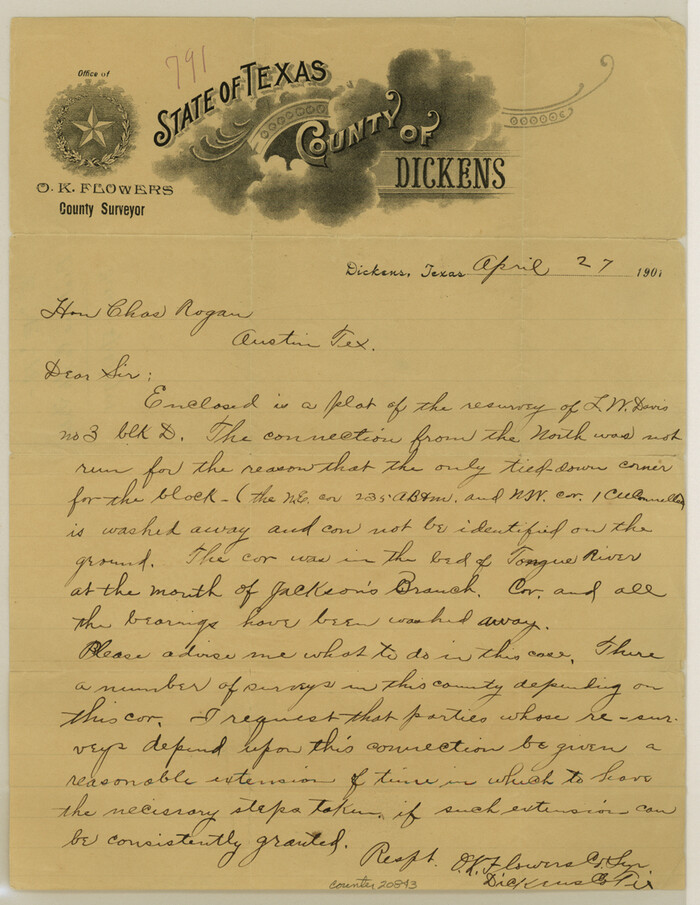 791
Office of
STATE OF TEXAS
COUNTY OF
DICKENS
O. K. FLOWERS
County Surveyor
Dickens, Texas April 27 1901
Hon Chas Rogan
Austin Tex.
Dear Sir;
Enclosed is a plat of the resurvey of L. W. Davis
no 3 blk D. The connection from the North was not
run for the reason that the only tied-down corner
for the block - ( the N.E. cor 235 AB&M. and NW. cor. 1
is washed away and con not be identified on the
ground. The cor was in the bed of Tongue River
at the mouth of Jackson's Branch. Cor. and all
the bearings have been washed away.
Please advise me what to do in this case. There
a number of surveys in this county depending on
this cor. I request that parties whose re-sur-
veys depend upon this connection be given a
reasonable extension of time in which to have
the necissary steps taken, if such extension can
be consistently granted.
Respt. O.K. Flowers Co. Syr
Dickens Co Tex
counter 20893